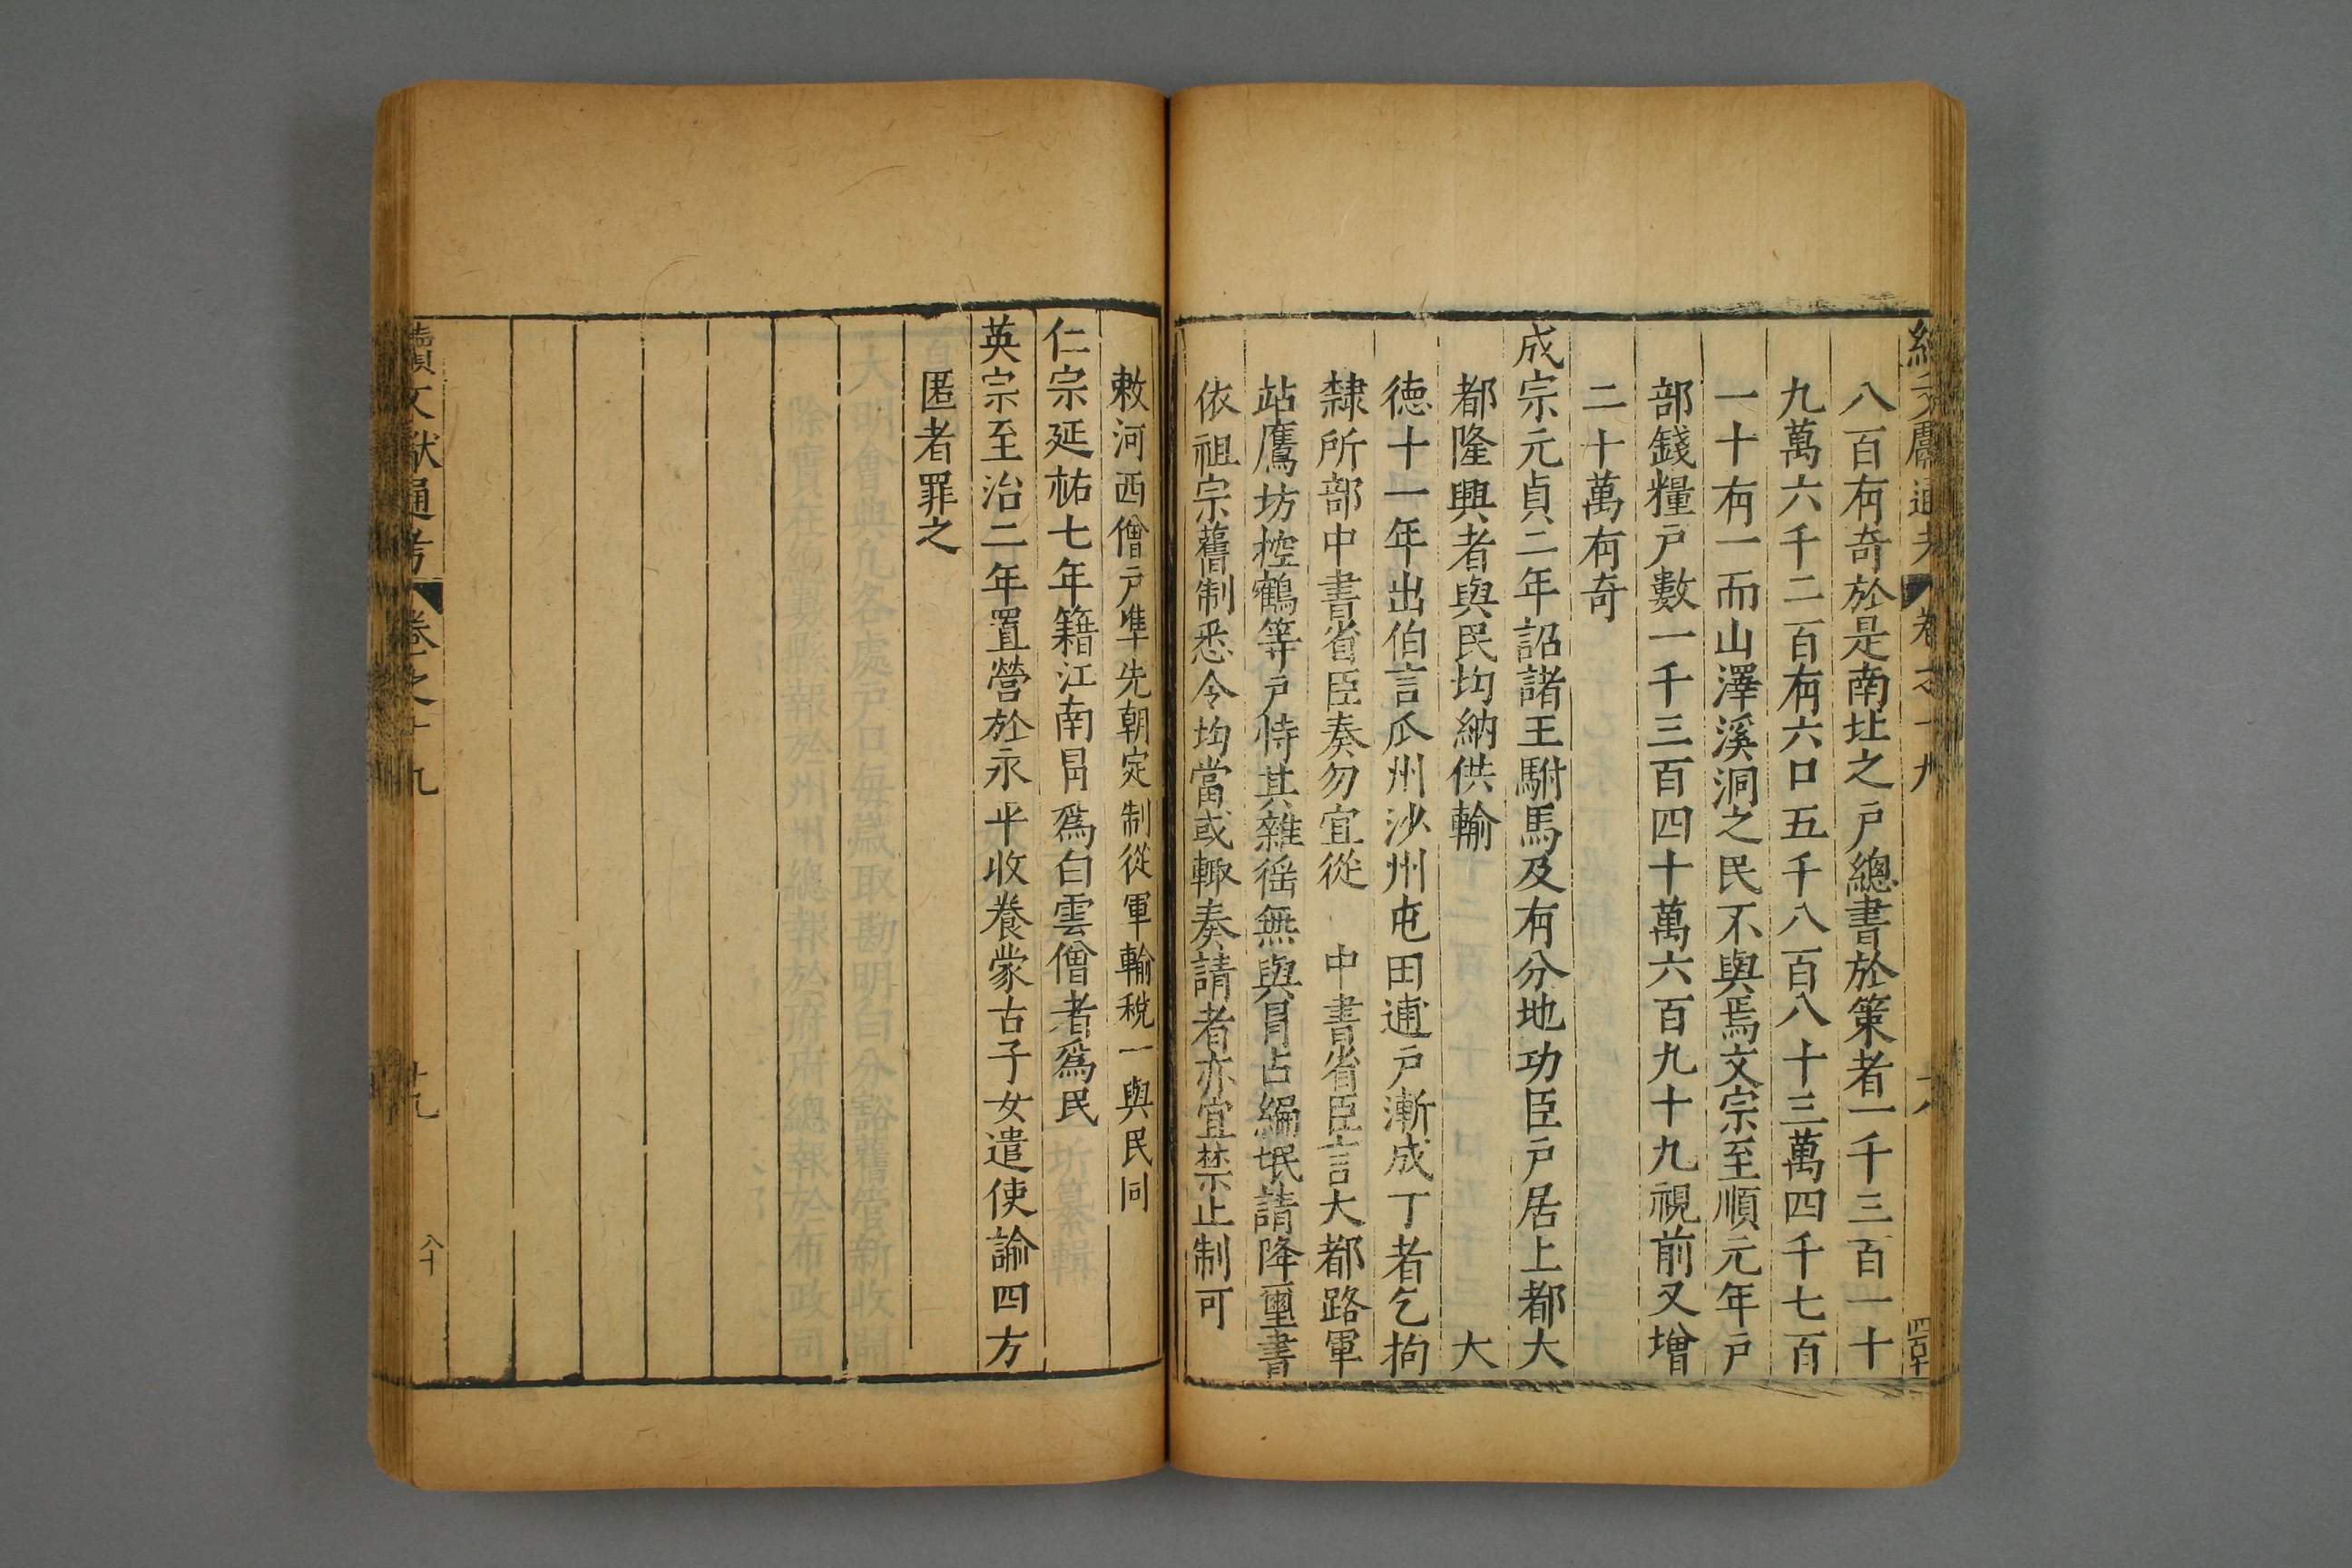 續文獻通考 卷之十九
八百有奇於是南北之戶總書於策者一千三百一十
九萬六千二百有六口五千八百八十三萬四千七百
一十有一而山澤溪洞之民不與焉文宗至順元年戶
部錢糧戶數一千三百四十萬六百九十九視前又增
二十萬有奇
成宗元貞二年詔諸王駙馬及有分地功臣戶居上都大
都隆興者與民均納供輸 大
德十一年出伯言瓜州沙州屯田逋戶漸成丁者乞拘
隸所部中書省臣奏勿宜從 中書省臣言大都路軍
站鷹坊控鶴等戶恃其雜徭無與冒占編氓請降璽書
依祖宗舊制悉令均當或輒奏請者亦宜禁止制可
敕河西僧戶準先朝定制從軍輸稅一與民同
仁宗延祐七年籍江南冒爲白雲僧者爲民
英宗至治二年置營於永平收養蒙古子女遣使諭四方
匿者罪之
續文獻通考 卷之十九 八十